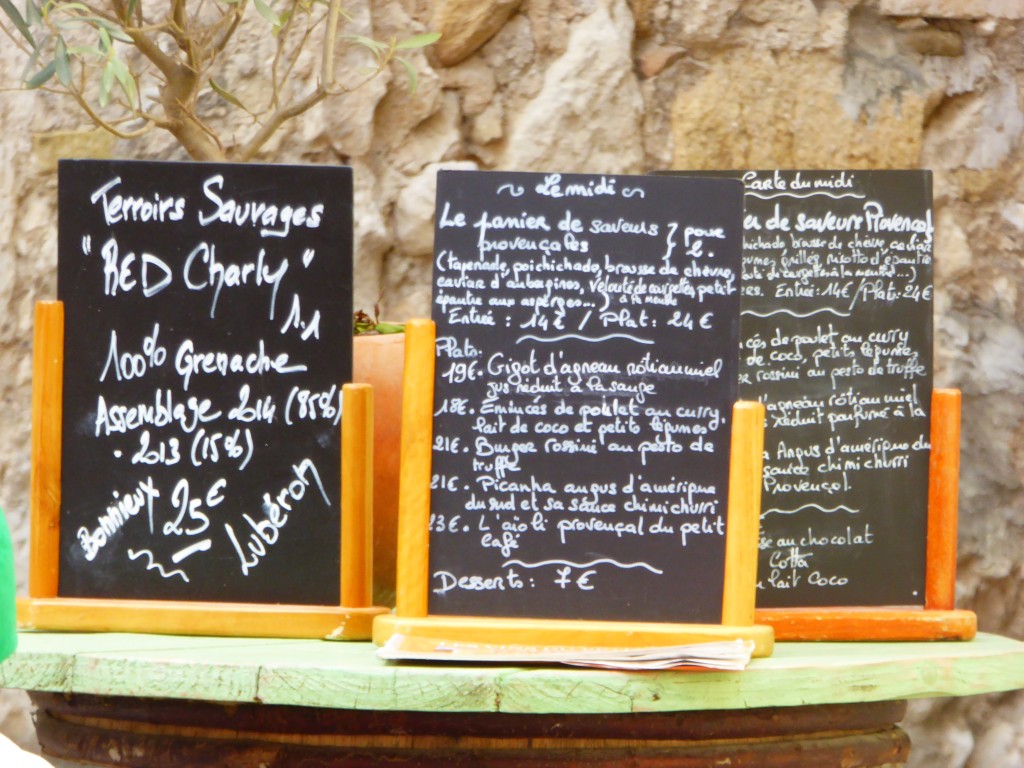 Terroirs Sauvages
"RED Charly"
1.1
100% Grenache
Assemblage 2014 (85%)
. 2013 (15%)
Bonnieux 25€ Lubéron
~ Le midi ~
Le panier de saveurs } pour
provençales } 2.
(tapenade, poichichade, brousse de chèvre,
caviar d'aubergines, velouté de courgettes, petit
épautre aux asperges...) à la menthe
Entrée : 14€ / Plat : 24€
Plats:
19€. Gigot d'agneau rôti au miel
jus réduit à la sauge
18€. Emincés de poulet au curry,
lait de coco et petits légumes.
21€. Burger rossini au pesto de
truffe
21€. Picanha angus d'amérique
du sud et sa sauce chimichurri
23€. L'aïoli provençal du petit
café
Desserts : 7€
Carte du midi
de saveurs Provençal
chichade, brousse de chèvre, caviar
grillés, risotto d'épautre
de courgettes à la menthe...)
Entrée: 14€ / Plat: 24€
de poulet au curry
de coco, petits légumes
rossini au pesto de truffe
d'agneau rôti au miel
réduit parfumé à la
Angus d'amérique du
sauce chimichurri
Provençal.
au chocolat
Cotta
lait Coco